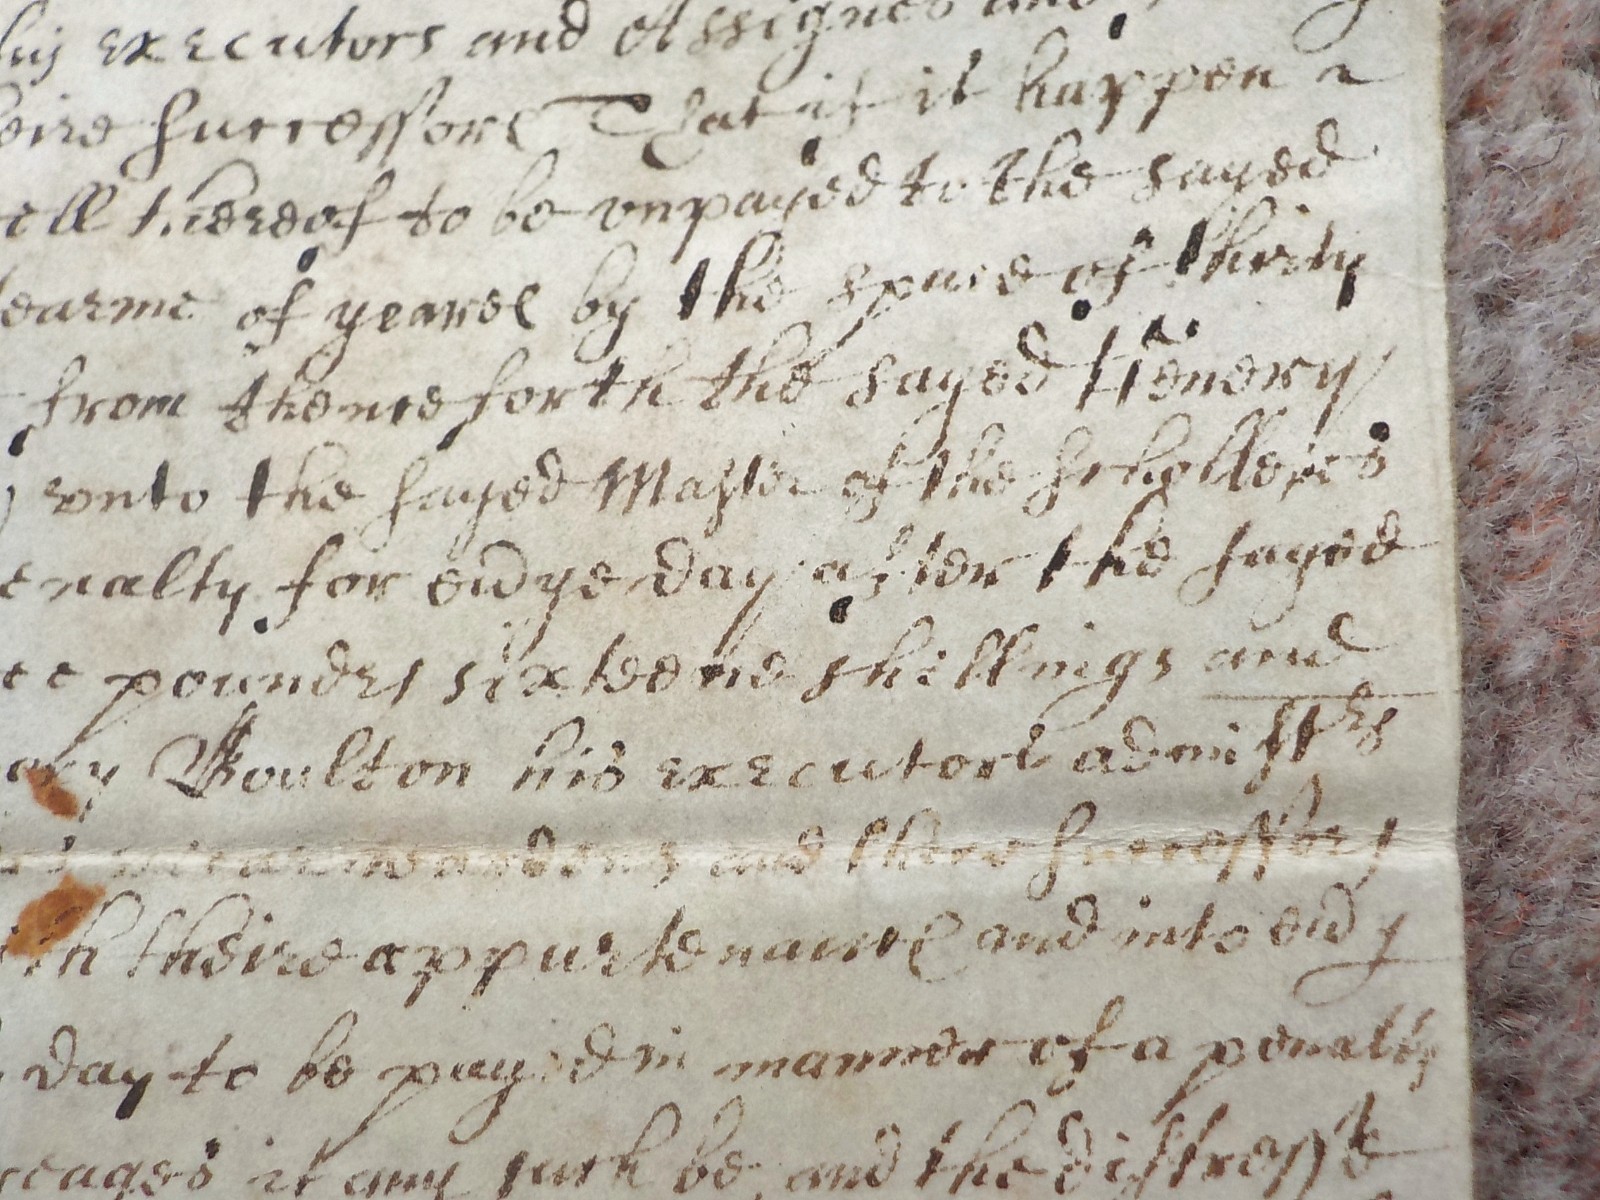 his executors and Assignes and
theire Successors That if it happen
all thereof to be vnpayed to the sayed
tearme of yeares by the space of thirty
from thenceforth the sayed Henery
vnto the sayed Master of the Schollers
penalty for eu'ye day after the sayed
pounds sixteene shillings and
Boulton his executors administrs
wardens and there Successors
theire appurtenances and into eu'y
day to be payed in manner of a penalty
if any such be and the distresse